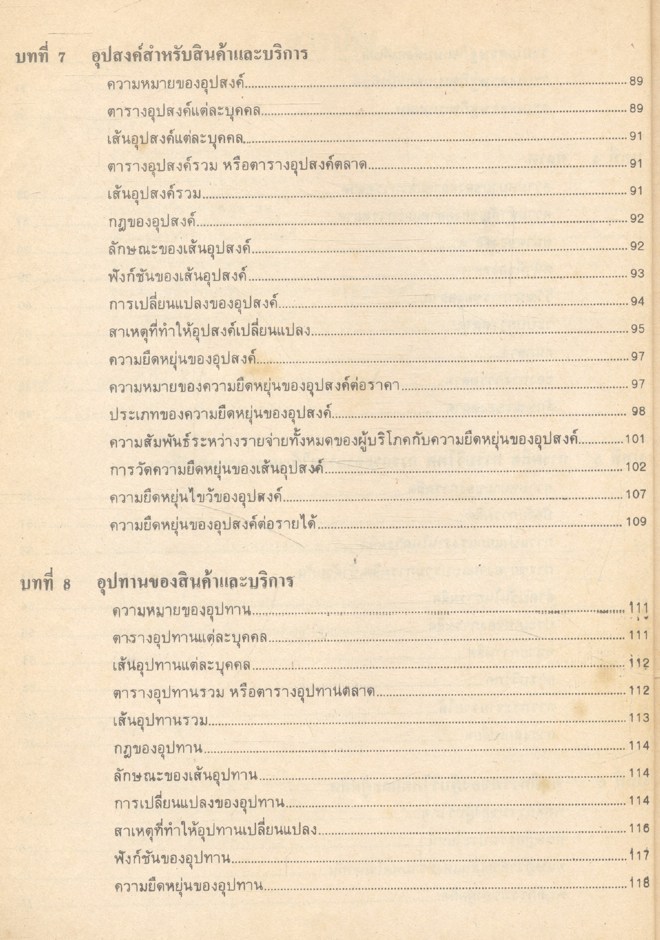 บทที่ 7 อุปสงค์สำหรับสินค้าและบริการ
ความหมายของอุปสงค์ 89
ตารางอุปสงค์แต่ละบุคคล 89
เส้นอุปสงค์แต่ละบุคคล 91
ตารางอุปสงค์รวม หรือตารางอุปสงค์ตลาด 91
เส้นอุปสงค์รวม 91
กฎของอุปสงค์ 92
ลักษณะของเส้นอุปสงค์ 92
ฟังก์ชันของเส้นอุปสงค์ 93
การเปลี่ยนแปลงของอุปสงค์ 94
สาเหตุที่ทำให้อุปสงค์เปลี่ยนแปลง 95
ความยืดหยุ่นของอุปสงค์ 97
ความหมายของความยืดหยุ่นของอุปสงค์ต่อราคา 97
ประเภทของความยืดหยุ่นของอุปสงค์ 98
ความสัมพันธ์ระหว่างรายจ่ายทั้งหมดของผู้บริโภคกับความยืดหยุ่นของอุปสงค์ 101
การวัดความยืดหยุ่นของเส้นอุปสงค์ 102
ความยืดหยุ่นไขว้ของอุปสงค์ 107
ความยืดหยุ่นของอุปสงค์ต่อรายได้ 109
บทที่ 8 อุปทานของสินค้าและบริการ
ความหมายของอุปทาน 111
ตารางอุปทานแต่ละบุคคล 111
เส้นอุปทานแต่ละบุคคล 112
ตารางอุปทานรวม หรือตารางอุปทานตลาด 112
เส้นอุปทานรวม 113
กฎของอุปทาน 114
ลักษณะของเส้นอุปทาน 114
การเปลี่ยนแปลงของอุปทาน 114
สาเหตุที่ทำให้อุปทานเปลี่ยนแปลง 116
ฟังก์ชันของอุปทาน 117
ความยืดหยุ่นของอุปทาน 118